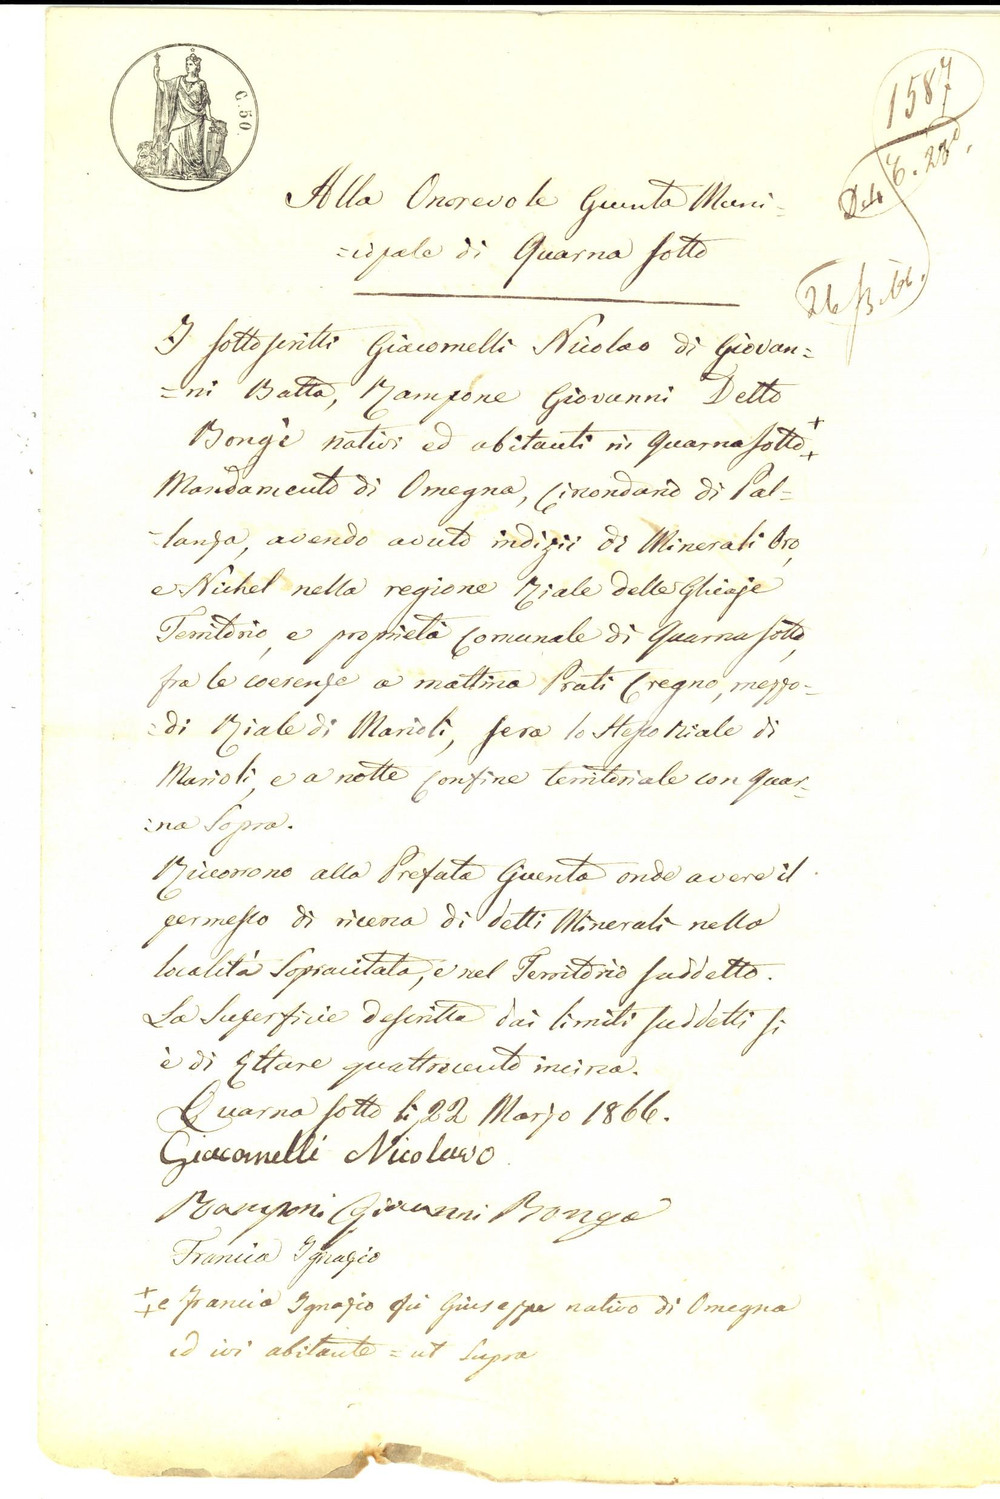 C. 50.
1587
26
Alla Onorevole Giunta Muni=
=cipale di Quarna Sotto
I sottoscritti Giacomelli Nicolao di Giovan=
=ni Batta, Rampone Giovanni Detto
Bongi nativi ed abitanti in Quarna Sotto ++
Mandamento di Omegna, Circondario di Pal=
=lanza, avendo avuto indizii di Minerali Oro,
e Nichel nella regione Riale delle Ghiaje
Territorio, e proprietà Comunale di Quarna Sotto,
fra le coerenze a mattina Prati Cregno, mezzo=
=di Riale di Marioli, sera lo stesso Riale di
Marioli, e a notte Confine territoriale con Quar=
=na Sopra.
Ricorrono alla Prefata Giunta onde avere il
permesso di ricerca di detti Minerali nella
località Sopracitata, e nel Territorio suddetto.
La Superficie descritta dai limiti suddetti si
è di Ettare quattrocento incirca.
Quarna Sotto li 22 Marzo 1866.
Giacomelli Nicolavo
Ramponi Giovanni Bongo
Francia Ignazio
++ e Francia Ignazio fu Giuseppe nativo di Omegna
ed ivi abitante = ut Supra